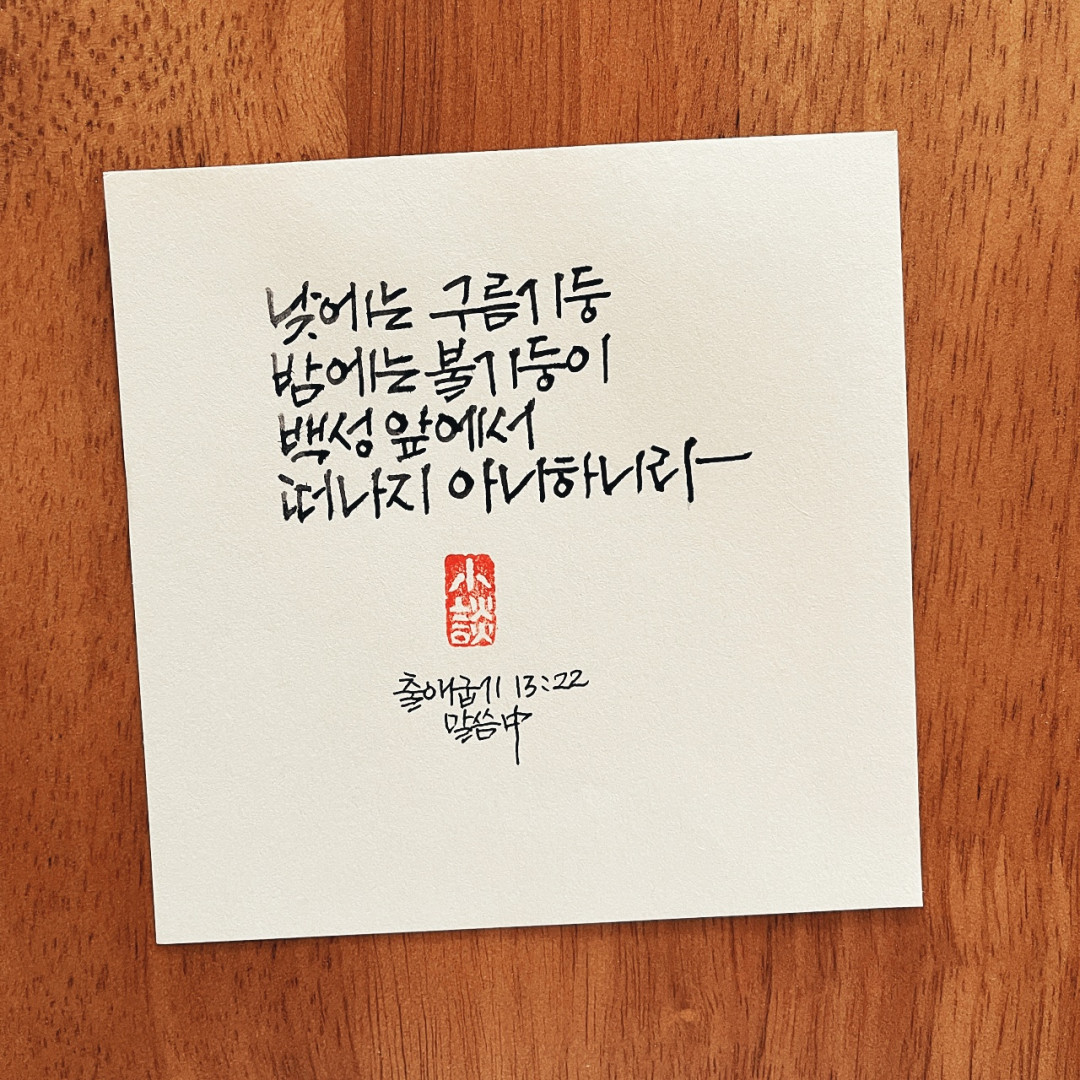 낮에는 구름기둥
밤에는 불기둥이
백성 앞에서
떠나지 아니하니라
小談
출애굽기 13:22
말씀中